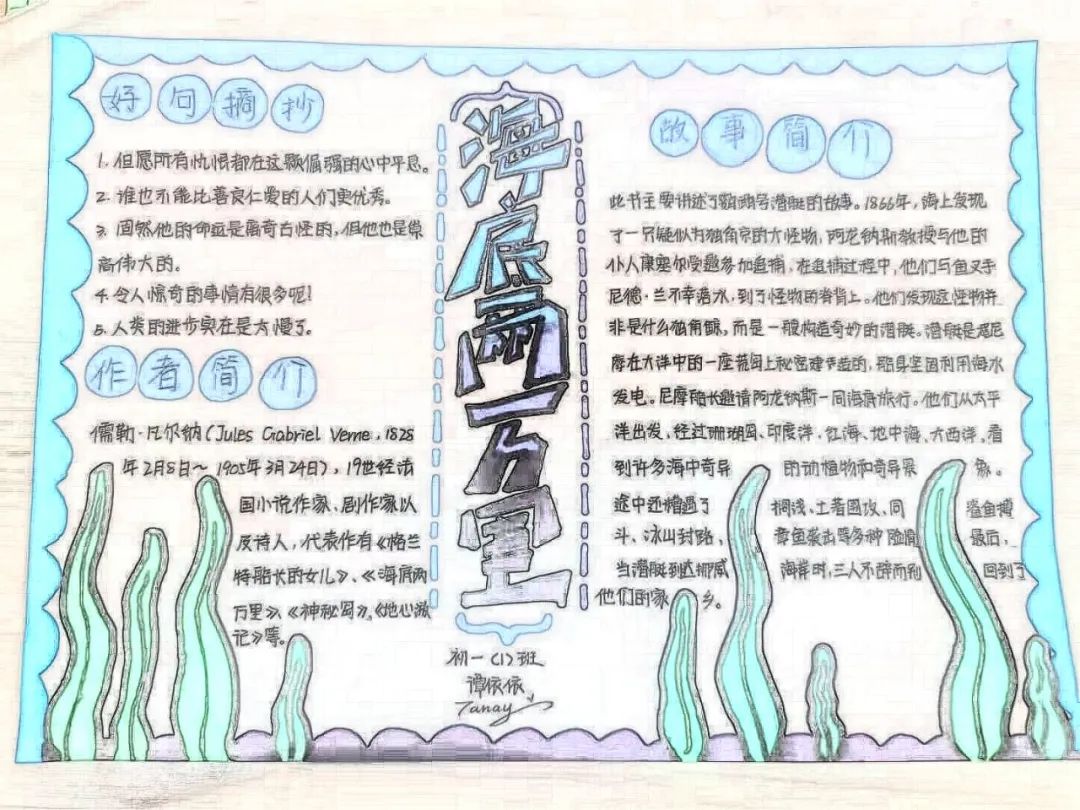 好句摘抄
1. 但愿所有仇恨都在这颗倔强的心中平息。
2. 谁也不能比善良仁爱的人们更优秀。
3. 固然他的命运是离奇古怪的,但他也是崇
高伟大的。
4. 令人惊奇的事情有很多呢!
5. 人类的进步实在是太慢了。
作者简介
儒勒·凡尔纳(Jules Gabriel Verne,1828
年2月8日～1905年3月24日),19世纪法
国小说作家、剧作家以
及诗人,代表作有《格兰
特船长的女儿》、《海底两
万里》、《神秘岛》、《地心游
记》等。
海底两万里
初一(1)班
谭依依
Tanay
故事简介
此书主要讲述了鹦鹉号潜艇的故事。1866年,海上发现
了一只疑似为独角鲸的大怪物,阿龙纳斯教授与他的
仆人康塞尔受邀参加追捕,在追捕过程中,他们与鱼叉手
尼德·兰不幸落水,到了怪物的脊背上。他们发现这怪物并
非是什么独角鲸,而是一艘构造奇妙的潜艇。潜艇是尼
摩在大洋中的一座荒岛上秘密建造的,船身坚固利用海水
发电。尼摩船长邀请阿龙纳斯一同海底旅行。他们从太平
洋出发,经过珊瑚岛、印度洋、红海、地中海、大西洋,看
到许多海中奇异的动植物和奇异景象。
途中还糟遇了搁浅、土著围攻、同鲨鱼搏
斗、冰山封路、章鱼袭击等多种险情,最后,
当潜艇到达挪威海岸时,三人不辞而别回到了
他们的家乡。